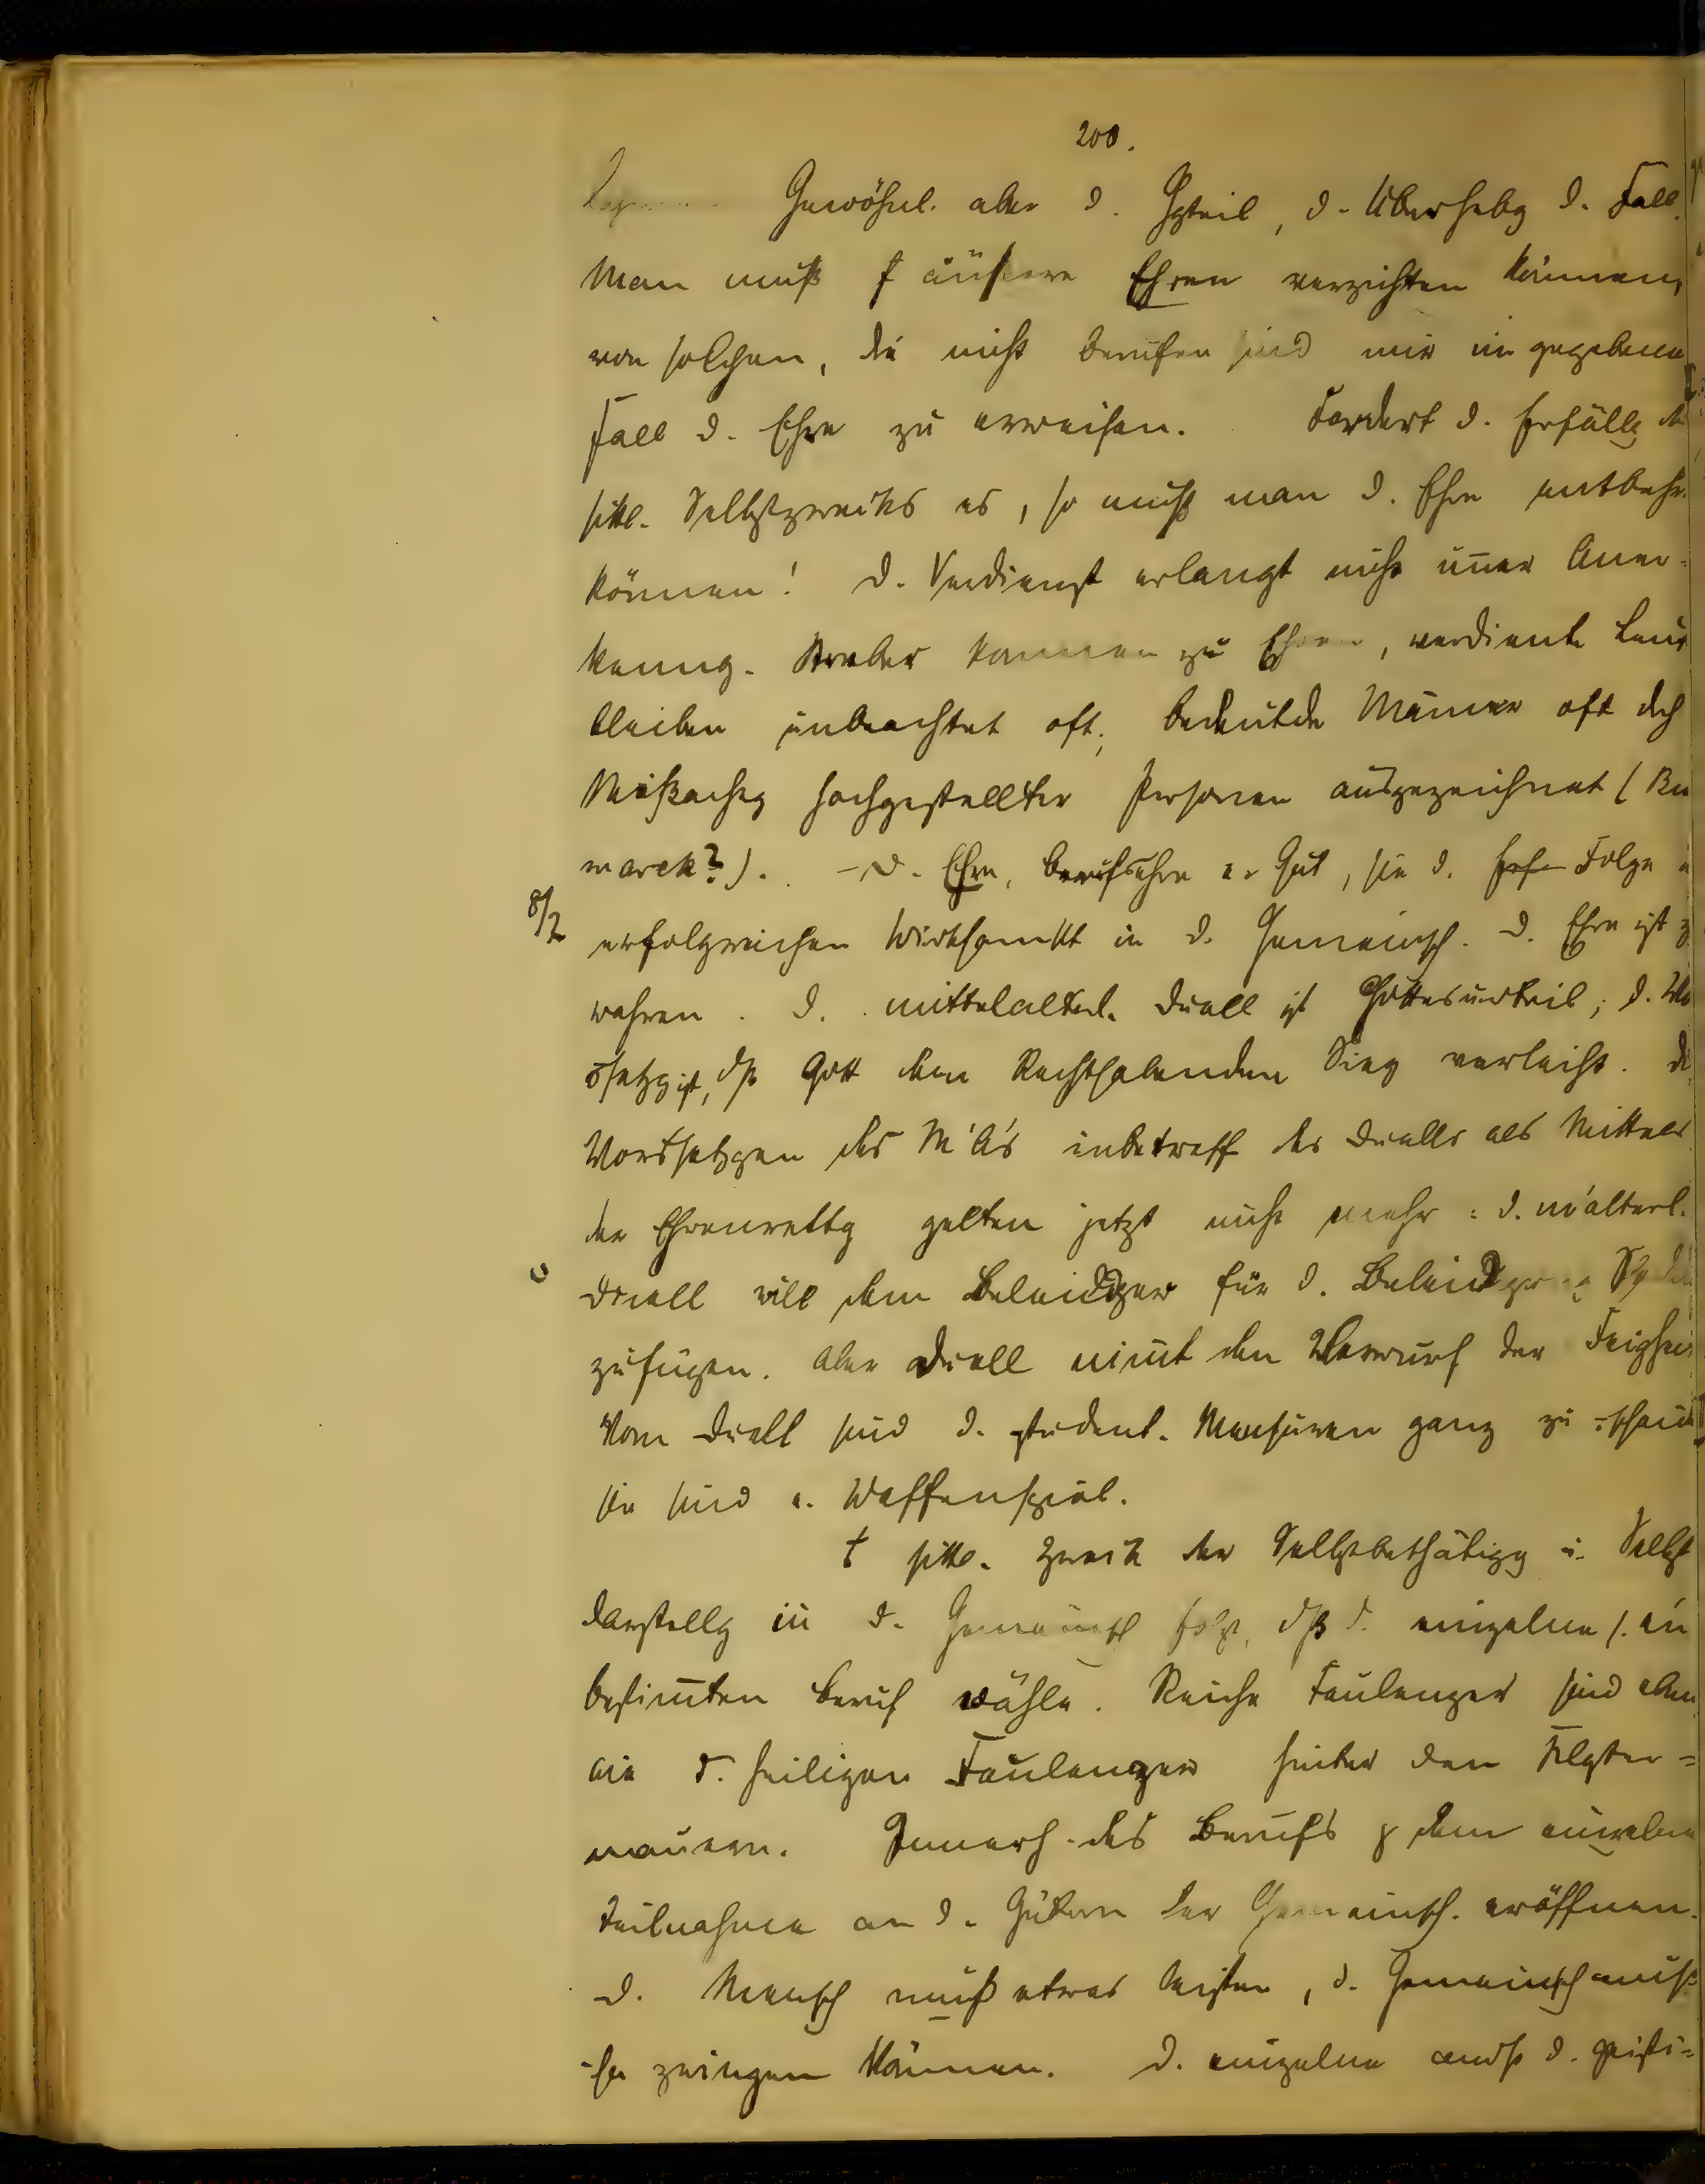 200.
Gewöhnl. aber d. Ggteil, d. Überhebg d. Fall.
Man muß f äußere Ehren verzichten können,
von solchen, die nicht berufen sind mir im gegebenen
Fall d. Ehre zu erweisen. Fordert d. Erfüllg
sittl. Selbstzwecks es, so muß man d. Ehre entbehr
können! D. Verdienst erlangt nicht im̄er Aner-
kenng. Streber kommen zu Ehren, verdiente Leute
bleiben unbeachtet oft, bedeutde Männer oft dch
Mißachtg hochgestellter Personen ausgezeichnet (Bis
marck?). - D. Ehre, Berufsehre e. Gut, sie d. Folge
8/2 erfolgreichen Wirksamkt in d. Gemeinsch. D. Ehre ist z
wahren. D. mittelalterl. Duell ist Gottesurteil; d.
ist, dß Gott dem Rechthabenden Sieg verleiht.
des M'A's inbetreff des Duells als Mittels
der Ehrenrettg gelten jetzt nicht mehr: d. m'alterl.
Duell will dem Beleidiger für d. Beleidigung
zufügen. Aber Duell nim̄t den Vorwurf der Feighei
Vom Duell sind d. student. Mensuren ganz zu
sie sind e. Waffenspiel.
sittl. Zweck der Selbstbethätigg u. Selbst
darstellg in d. Gemeinsch folgt, dß d. einzelne s. ein
bestim̄ten Beruf wähle. Reiche Faulenzer sind eben
wie d. heiligen Faulenzer hinter den Kloster-
mauern. Innerh. des Berufs dem einzelnen
Teilnahme an d. Gütern der Gemeinsch. eröffnen.
D. Mensch muß etwas leisten, d. Gemeinsch muß
zwingen können. D. einzelne d. geisti-